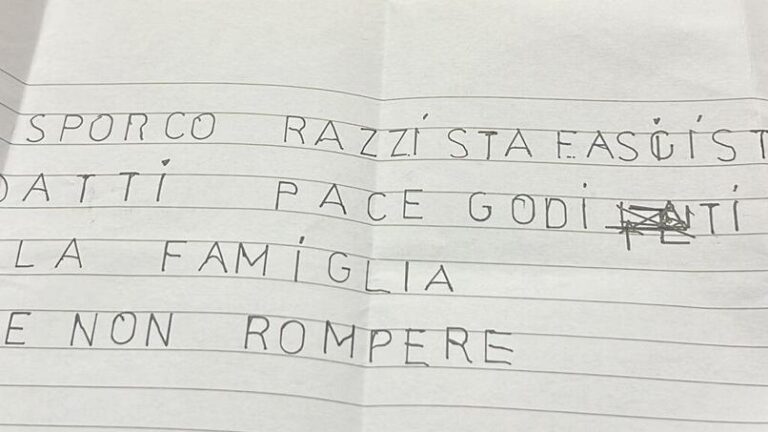 SPORCO RAZZİSTA FASCİST
DATTİ PACE GODİ TİTİ
LA FAMİGLIA
E NON ROMPERE